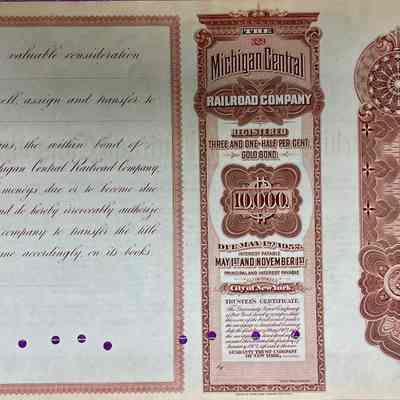 valuable consideration
ell, assign and transfer to
ns, the within bond of
chigan Central Railroad Company,
moneys due or to become due
nd do hereby irrevocably authorize
company to transfer the title
me accordingly on its books.
THE
Michigan Central
RAILROAD COMPANY
REGISTERED
THREE AND ONE-HALF PER CENT.
GOLD BOND.
10,000.
DUE MAY 1ST 1952.
INTEREST PAYABLE
MAY 1ST AND NOVEMBER 1ST
PRINCIPAL AND INTEREST PAYABLE
City of New York.
TRUSTEE'S CERTIFICATE.
GUARANTY TRUST COMPANY
OF NEW YORK,
By